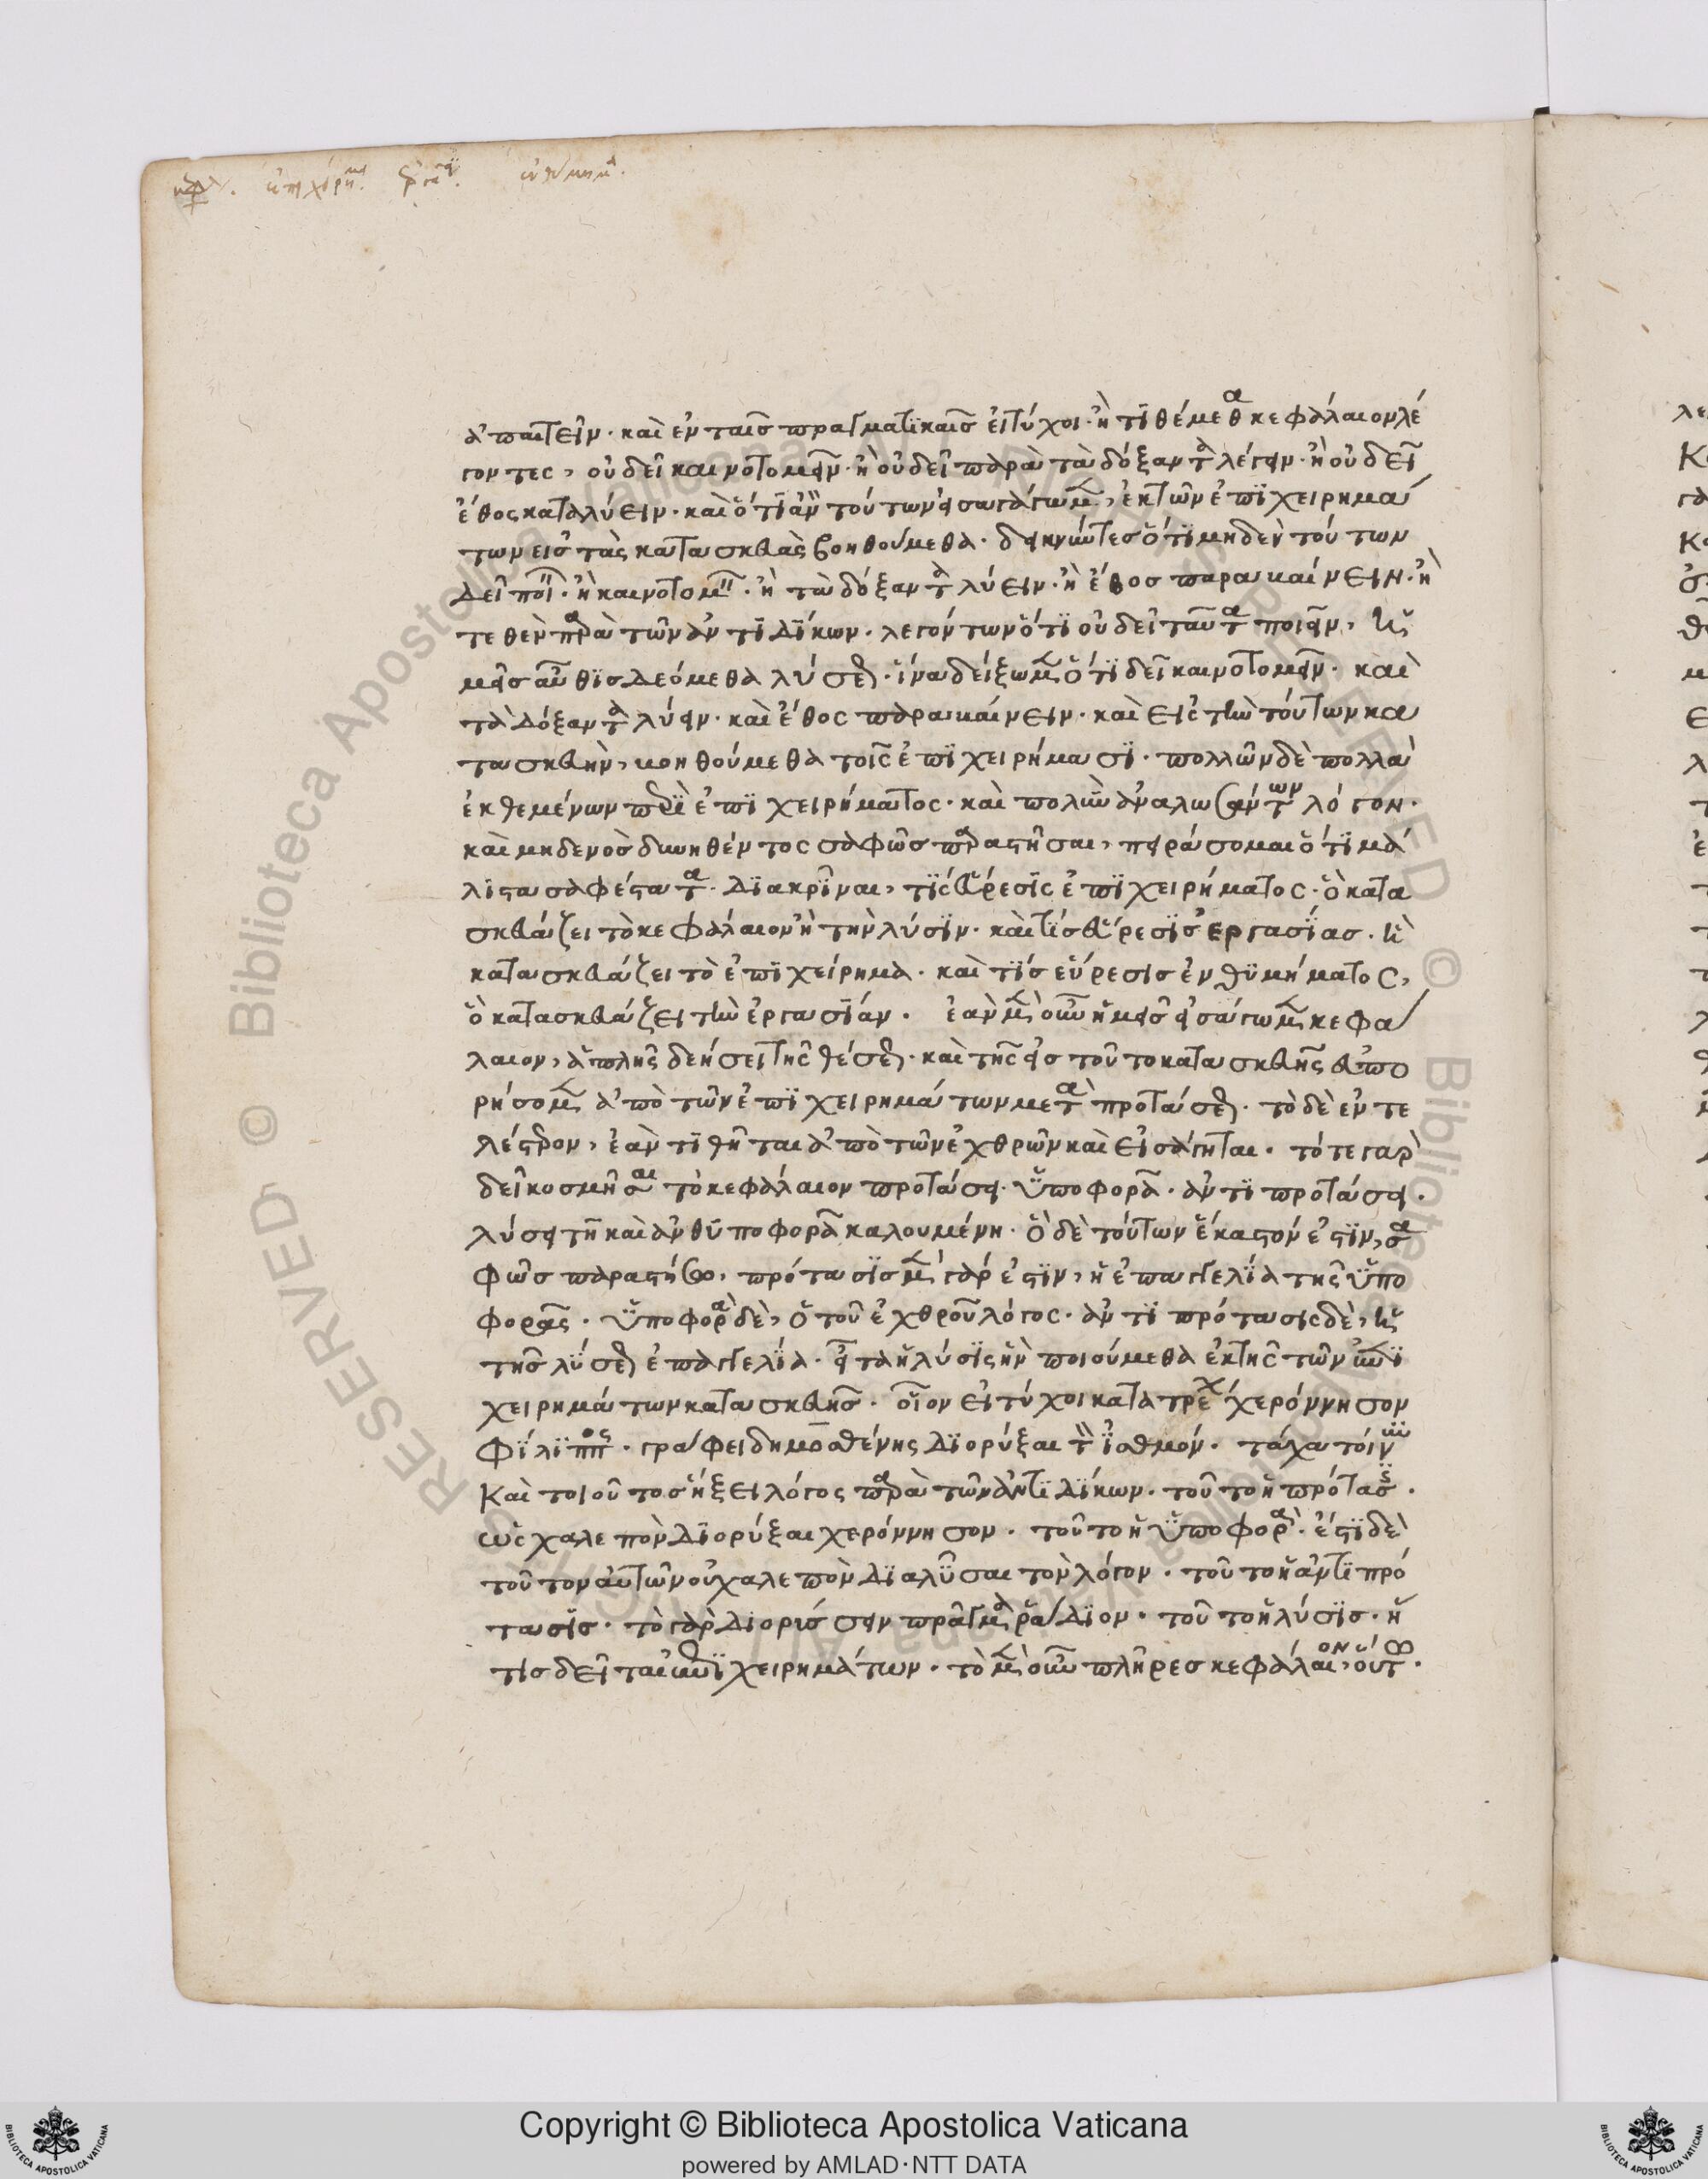 ἀπαιτεῖν· καὶ ἐν ταῖς πραγματικαῖς εἰ τύχοι· ἢ τιθέμεθα κεφάλαιον λέ
γοντες, οὐ δεῖ καινοτομεῖν· ἢ οὐ δεῖ παρὰ τὰ δόξαντα λέγειν· ἢ οὐ δεῖ
ἔθος καταλύειν· καὶ ὅτι ἂν τούτων εἰσαγάγωμεν, ἐκ τῶν ἐπιχειρημά
των εἰς τὰς κατασκευὰς βοηθούμεθα· δεικνύντες ὅτι μηδὲν τούτων
δεῖ ποιεῖν· ἢ καινοτομεῖν· ἢ τὰ δόξαντα λύειν· ἢ ἔθος παραβαίνειν· ἢ
τεθὲν παρὰ τῶν ἀντιδίκων· λεγόντων ὅτι οὐ δεῖ ταῦτα ποιεῖν, ἡ
μεῖς αὖθις δεόμεθα λύσεως· ἵνα δείξωμεν ὅτι δεῖ καινοτομεῖν· καὶ
τὰ δόξαντα λύειν· καὶ ἔθος παραβαίνειν· καὶ εἰς τὴν τούτων κα
τασκευὴν, βοηθούμεθα τοῖς ἐπιχειρήμασι· πολλῶν δὲ πολλὰ
ἐκθεμένων περὶ ἐπιχειρήματος· καὶ πολὺν ἀναλωσάντων λόγον·
καὶ μηδενὸς δυνηθέντος σαφῶς παραστῆσαι, πειράσομαι ὅτι μά
λιστα σαφέστατα· διακρῖναι, τίς εὕρεσις ἐπιχειρήματος· ὃ κατα
σκευάζει τὸ κεφάλαιον ἢ τὴν λύσιν· καὶ τίς εὕρεσις ἐργασίας· ἣ
κατασκευάζει τὸ ἐπιχείρημα· καὶ τίς εὕρεσις ἐνθυμήματος,
ὃ κατασκευάζει τὴν ἐργασίαν· ἐὰν μὲν οὖν ἡμεῖς εἰσάγωμεν κεφά
λαιον, ἁπλῆς δεήσει τῆς θέσεως· καὶ τῆς εἰς τοῦτο κατασκευῆς εὐπο
ρήσομεν ἀπὸ τῶν ἐπιχειρημάτων μετὰ προτάσεως· τὸ δὲ ἐντε
λέστερον, ἐὰν τιθῆται ἀπὸ τῶν ἐχθρῶν καὶ εἰσάγηται· τότε γὰρ
δεῖ κοσμῆσαι τὸ κεφάλαιον προτάσει· ὑποφορᾶ· ἀντιπροτάσει·
λύσει τῆ καὶ ἀνθυποφορᾶ καλουμένη· ὃ δὲ τούτων ἕκαστόν ἐστιν, σα
φῶς παραστήσω, πρότασις μὲν γάρ ἐστιν, ἡ ἐπαγγελία τῆς ὑπο
φορᾶς· ὑποφορὰ δὲ, ὁ τοῦ ἐχθροῦ λόγος· ἀντιπρότασις δὲ, ἡ
τῆς λύσεως ἐπαγγελία· εἶτα ἡ λύσις ἣν ποιούμεθα ἐκ τῆς τῶν ἐπι
χειρημάτων κατασκευῆς· οἷον εἰ τύχοι κατατρέχει χερόννησον
φίλιππος· γράφει δημοσθένης διορύξαι τὸν ἰσθμόν· τάχα τοίνυν
καὶ τοιοῦτος ἥξει λόγος παρὰ τῶν ἀντιδίκων· τοῦτο ἡ πρότασις·
ὡς χαλεπὸν διορύξαι χερόννησον· τοῦτο ἡ ὑποφορὰ· ἔστι δὲ
τοῦτον αὐτῶν οὐ χαλεπὸν διαλῦσαι τὸν λόγον· τοῦτο ἡ ἀντιπρό
τασις· τὸ γὰρ διορύσσειν πρᾶγμα ῥάδιον· τοῦτο ἡ λύσις· ἥ
τις δεῖται ἐπιχειρημάτων· τὸ μὲν οὖν πλῆρες κεφάλαιον, οὕτω·
RESERVED © Biblioteca Apostolica Vaticana
Copyright © Biblioteca Apostolica Vaticana
powered by AMLAD·NTT DATA
BIBLIOTECA APOSTOLICA VATICANA
BIBLIOTECA APOSTOLICA VATICANA